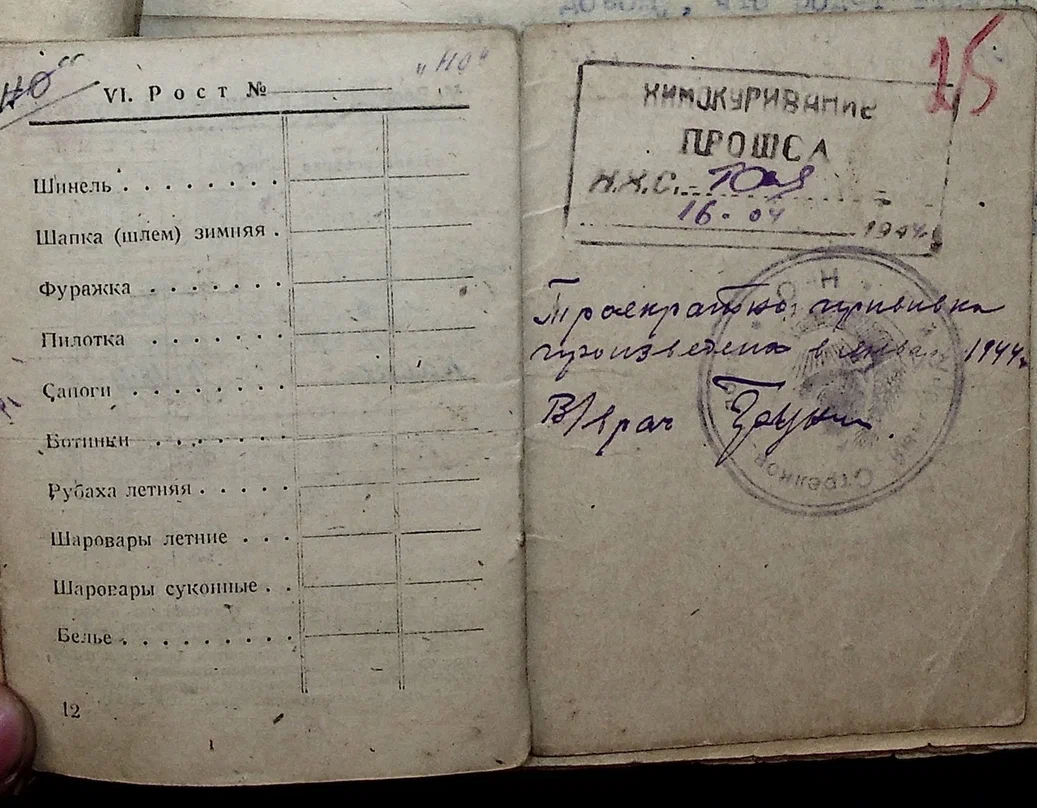 "НО"
VI. Рост №
Шинель . . . . . . . .
Шапка (шлем) зимняя .
Фуражка . . . . . . .
Пилотка . . . . . . .
Сапоги . . . . . . . .
Ботинки . . . . . . .
Рубаха летняя . . . . .
Шаровары летние . . .
Шаровары суконные . .
Белье . . . . . . . . .
12
15
ХИМОКУРИВАНИЕ
ПРОШСА
16. 04 1944
Троекратно прививка
произведена в январе 1944г.
В/врач
Стрелков